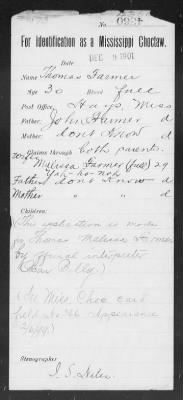 No. 0921
For Identification as a Mississippi Choctaw.
Date DEC 9 1901
Name Thomas Farmer
Age 30 Blood full
Post Office Hays, Miss
Father: John Farmer d
Mother: don't know d
Claims through both parents.
wife
Malissa Farmer (full) 29
Father don't know d
Mother " " d
Children:
The application is made
by Thomas Malissa Farmer
by official interpreter
(See Miss. Choc card
field No. 46 Appearance
Stenographer